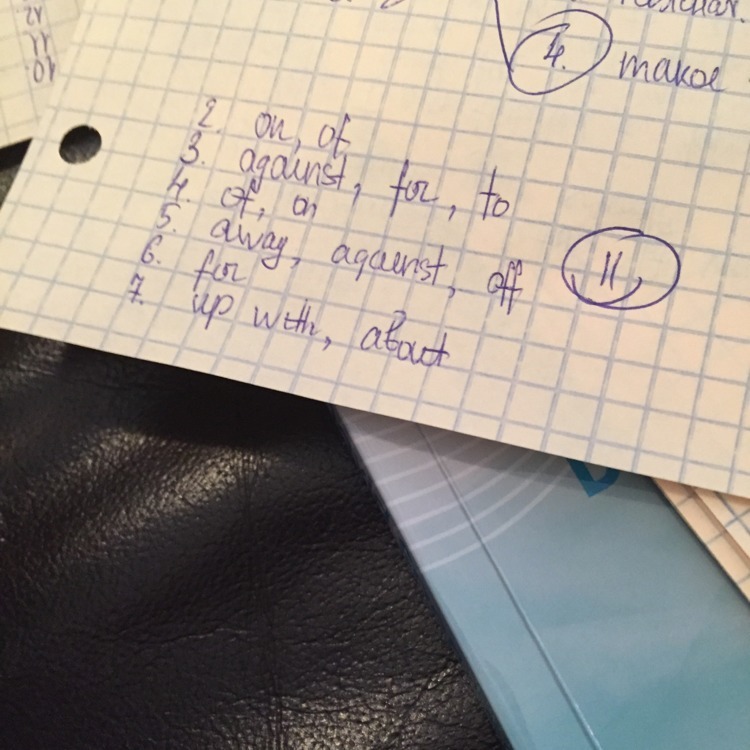 4. такое
2. on, of
3. against, for, to
4. of, on
5. away, against, off
6. for
7. up with, about
11
12
11
10